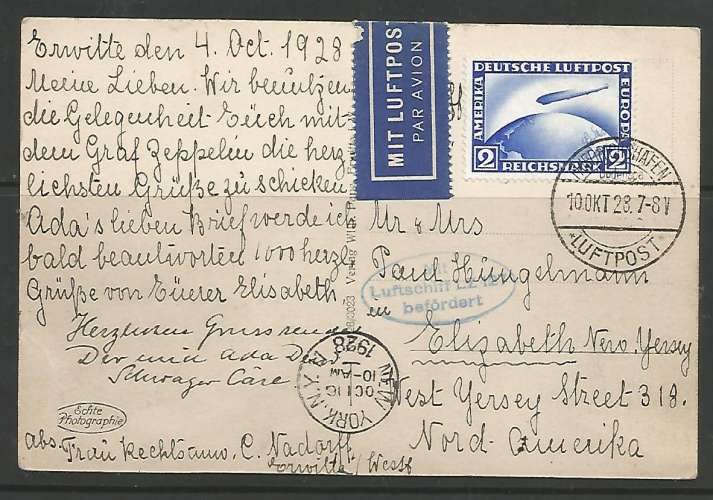 Erwitte den 4. Oct. 1928
Meine Lieben. Wir benutzen
die Gelegenheit Euch mit
dem Graf Zeppelin die herz
lichsten Grüße zu schicken
Ada's lieben Brief werde ich
bald beautworten 1000 herzl.
Grüße von Euerer Elisabeth
Herzlichen Gruss
Der und Ada Dein
Schwager
Echte
Photographie
abs. Frau C. Nadorff
Erwitte/Westf
MIT LUFTPOST
PAR AVION
DEUTSCHE LUFTPOST
AMERIKA
EUROPA
2 REICHSMARK 2
FRIEDRICHSHAFEN
10 OKT 28. 7-8 V
*LUFTPOST*
Mr & Mrs
Paul Hüngelmann
Mit
Luftschiff LZ 127
befördert
en Elizabeth New. Yersey
West Yersey Street 318.
Nord-Amerika
NEW YORK N.Y.
OCT 16
10-AM
1928